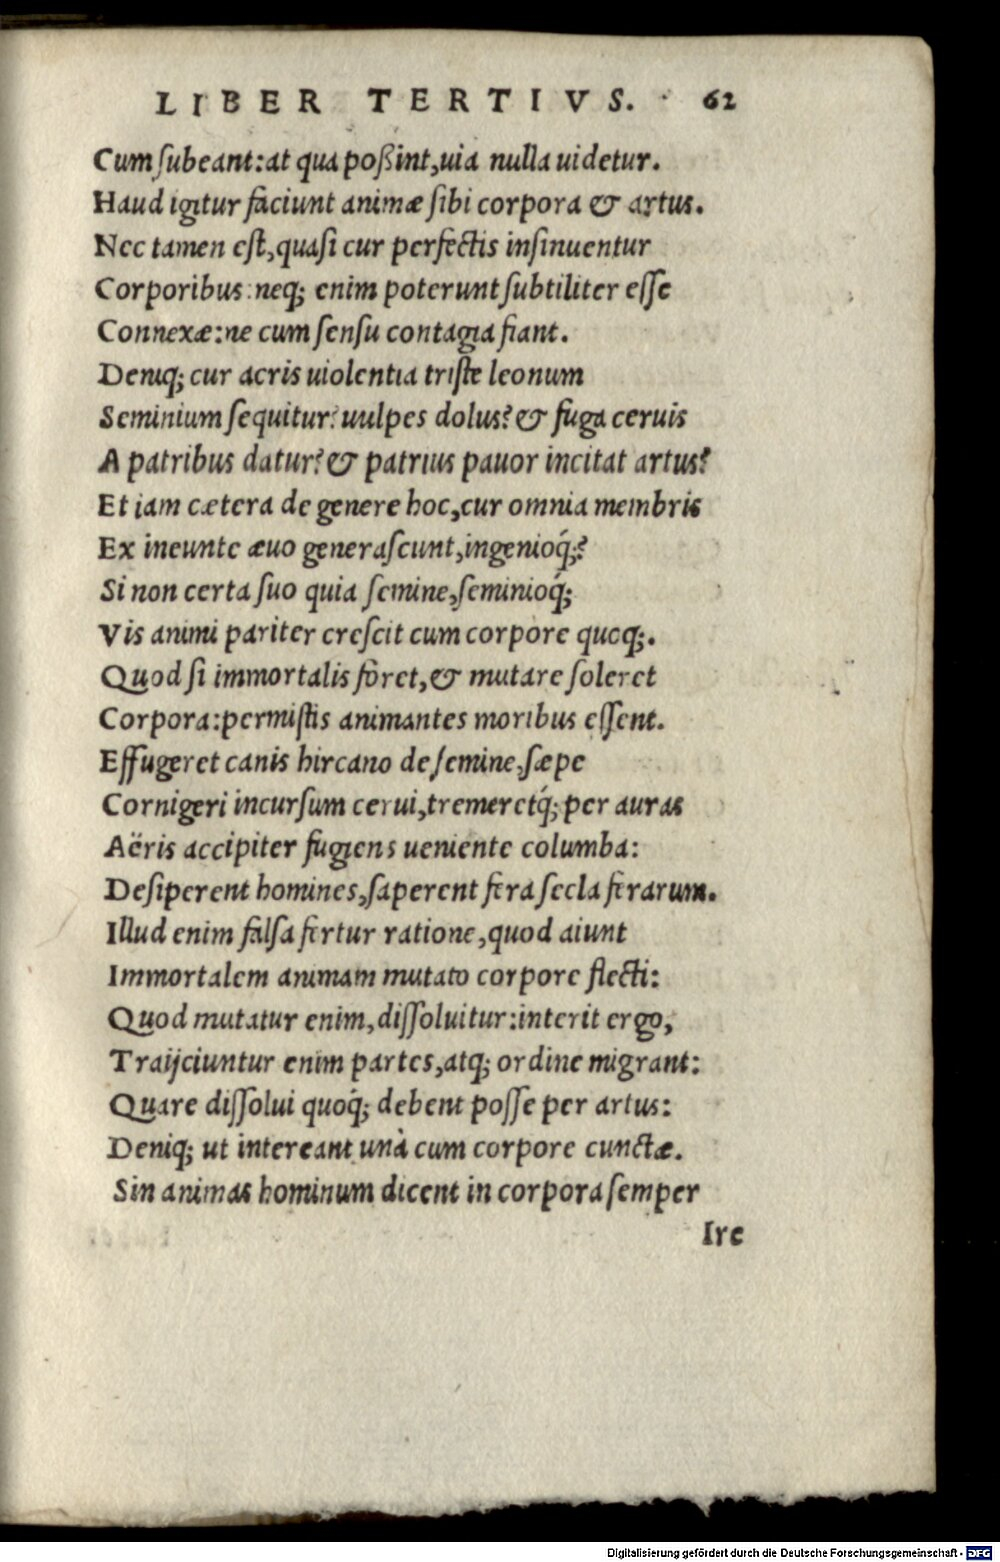 LIBER TERTIVS. 62
Cum ſubeant: at qua poßint, uia nulla uidetur.
Haud igitur faciunt animæ ſibi corpora & artus.
Nec tamen eſt, quaſi cur perfectis inſinuentur
Corporibus: neq; enim poterunt ſubtiliter eſſe
Connexæ: ne cum ſenſu contagia fiant.
Deniq; cur acris uiolentia triſte leonum
Seminium ſequitur? uulpes dolus? & fuga ceruis
A patribus datur? & patrius pauor incitat artus?
Et iam cætera de genere hoc, cur omnia membris
Ex ineunte æuo generaſcunt, ingenioq́;?
Si non certa ſuo quia ſemine, ſeminioq́;
Vis animi pariter creſcit cum corpore quoq;.
Quod ſi immortalis foret, & mutare ſoleret
Corpora: permiſtis animantes moribus eſſent.
Effugeret canis hircano de ſemine, ſæpe
Cornigeri incurſum cerui, tremeretq́; per auras
Aëris accipiter fugiens ueniente columba:
Deſiperent homines, ſaperent fera ſecla ferarum.
Illud enim falſa fertur ratione, quod aiunt
Immortalem animam mutato corpore flecti:
Quod mutatur enim, diſſoluitur: interit ergo,
Traijciuntur enim partes, atq; ordine migrant:
Quare diſſolui quoq́; debent poſſe per artus:
Deniq; ut intereant unà cum corpore cunctæ.
Sin animas hominum dicent in corpora ſemper
Ire
Digitalisierung gefördert durch die Deutsche Forschungsgemeinschaft - DFG